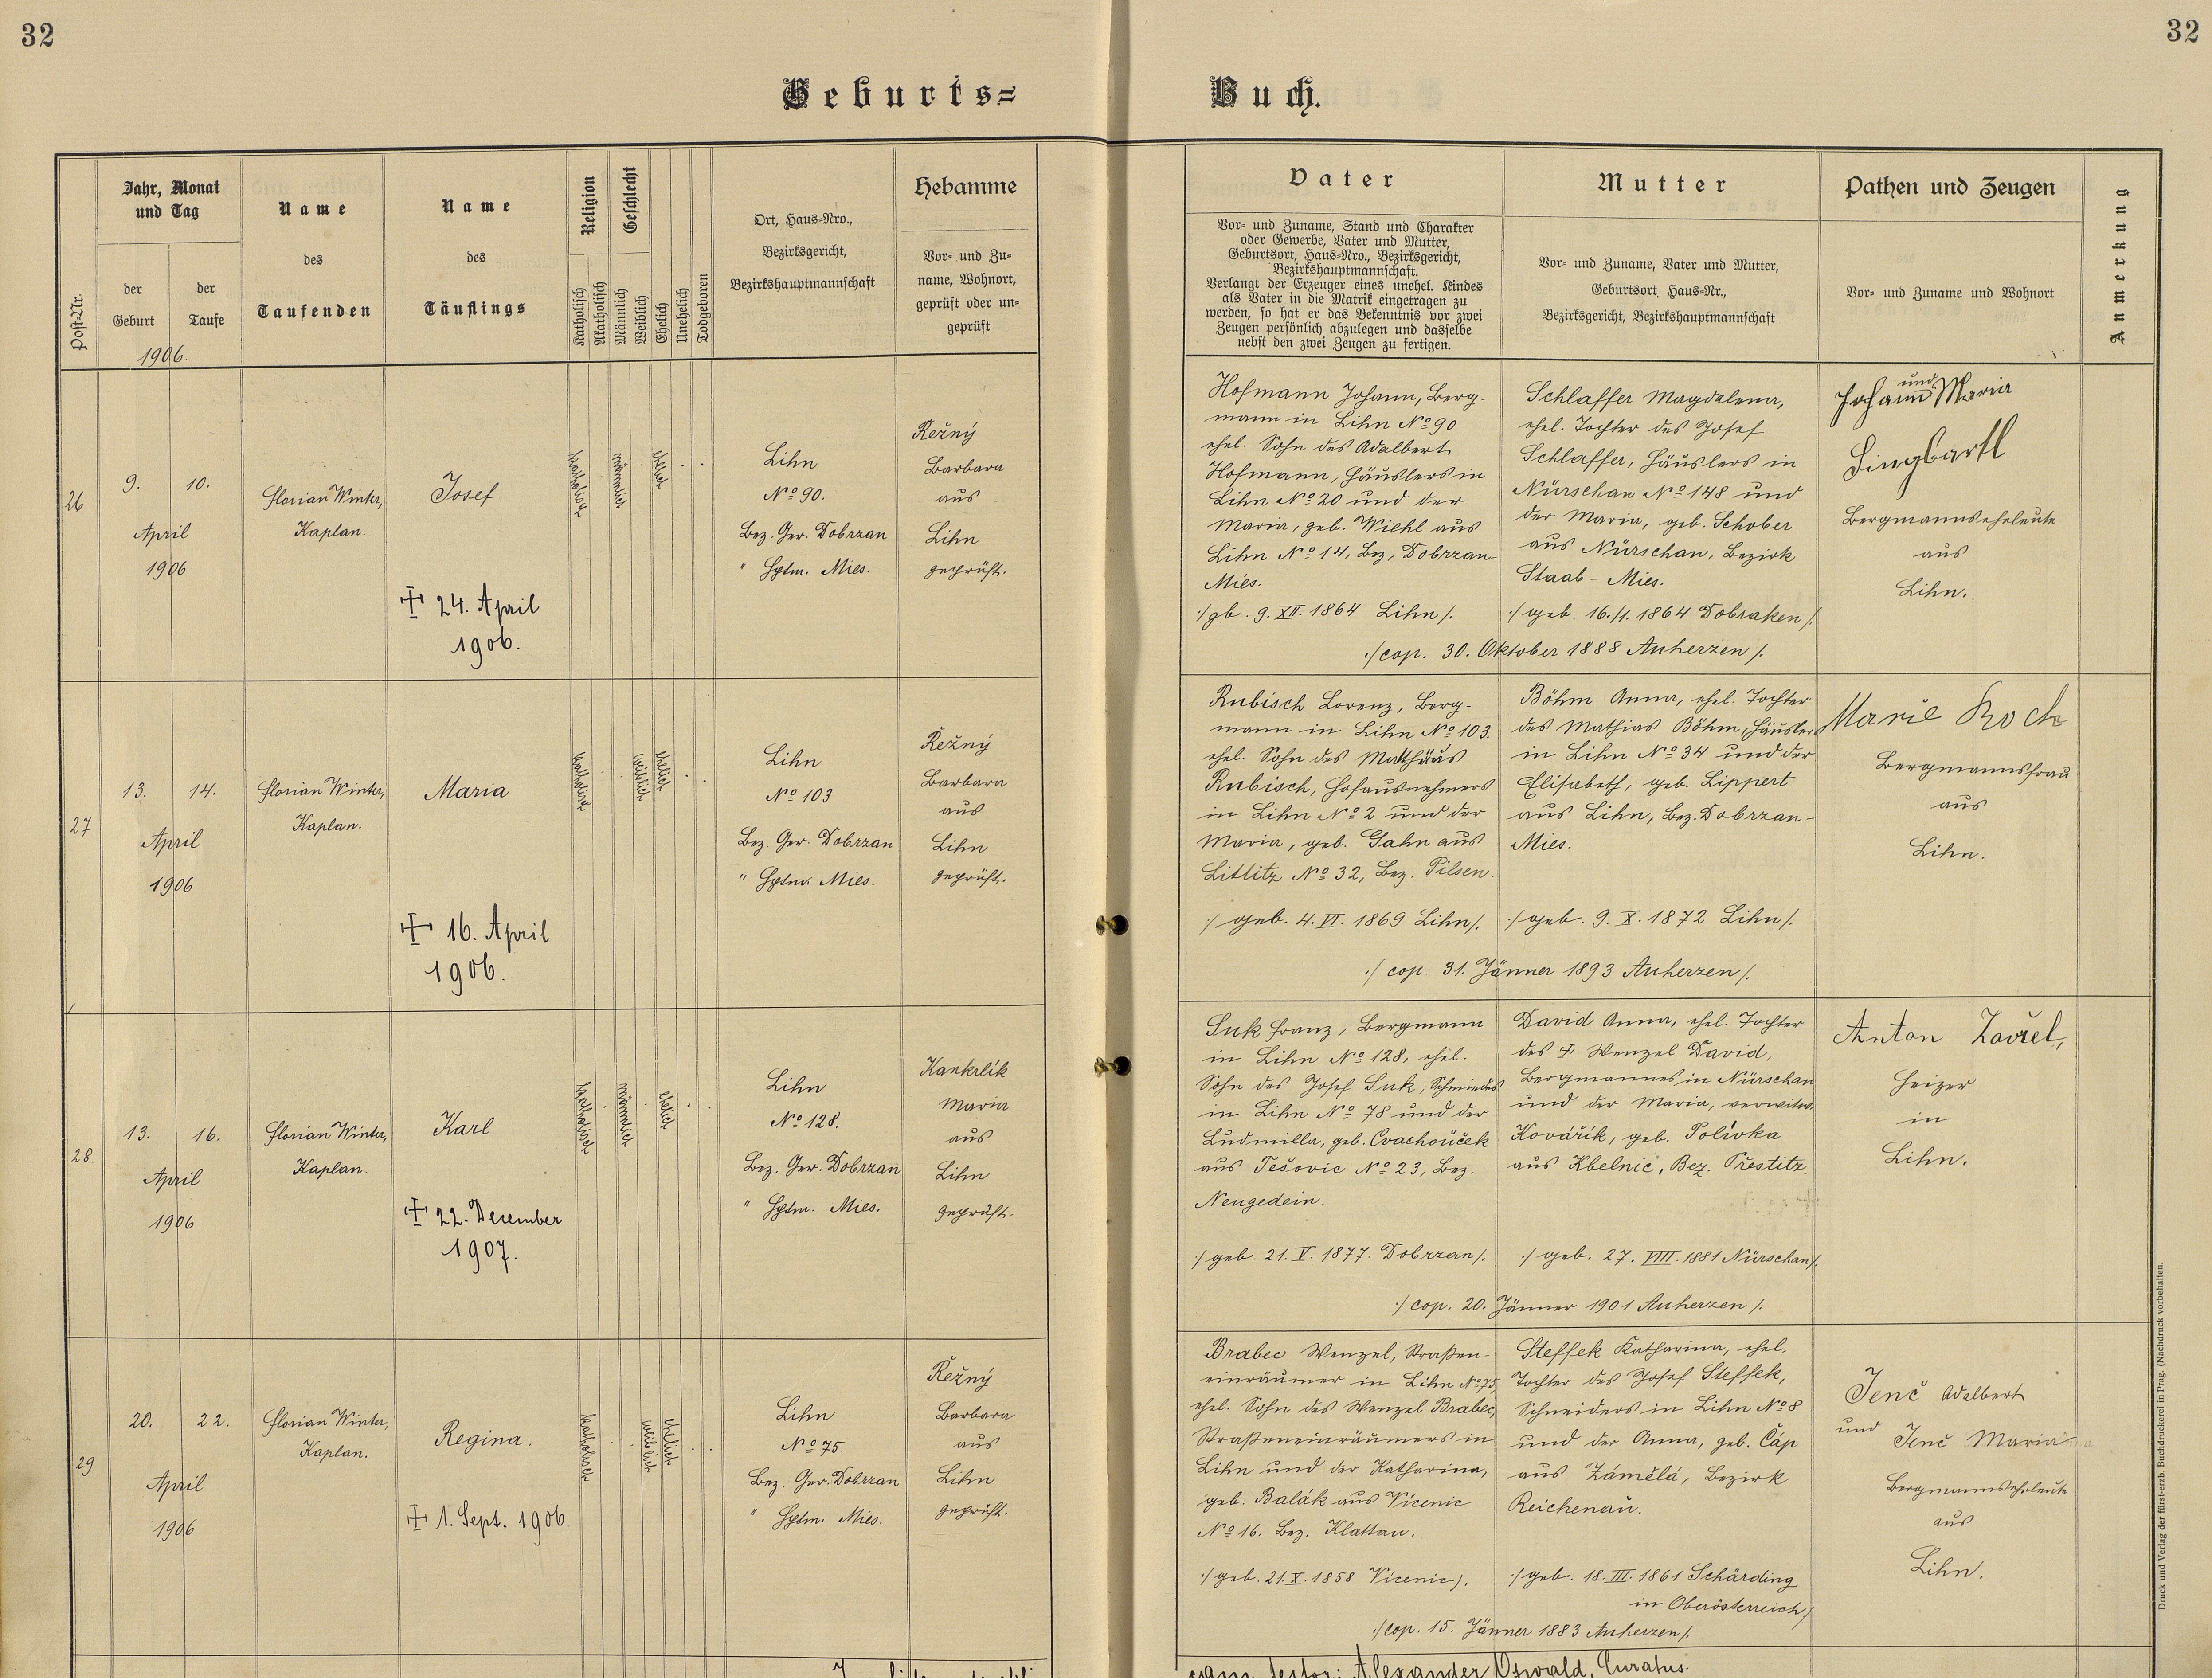 32
32
Geburts=
Buch.
Post-Nr.
Jahr, Monat
und Tag
der
Geburt
der
Taufe
1906.
Name
des
Taufenden
Name
des
Täuflings
Religion
Katholisch
Akatholisch
Geschlecht
Männlich
Weiblich
Ehelich
Unehelich
Todgeboren
Ort, Haus-Nro.,
Bezirksgericht,
Bezirkshauptmannschaft
Hebamme
Vor- und Zu-
name, Wohnort,
geprüft oder un-
geprüft
Vater
Vor- und Zuname, Stand und Charakter
oder Gewerbe, Vater und Mutter,
Geburtsort, Haus-Nro., Bezirksgericht,
Bezirkshauptmannschaft.
Verlangt der Erzeuger eines unehel. Kindes
als Vater in die Matrik eingetragen zu
werden, so hat er das Bekenntnis vor zwei
Zeugen persönlich abzulegen und dasselbe
nebst den zwei Zeugen zu fertigen.
Mutter
Vor- und Zuname, Vater und Mutter,
Geburtsort, Haus-Nr.,
Bezirksgericht, Bezirkshauptmannschaft
Pathen und Zeugen
Vor- und Zuname und Wohnort
Anmerkung
26
9.
10.
April
1906
Florian Winter,
Kaplan.
Josef.
✝ 24. April
1906.
katholisch
männlich
ehelich
Lihn
No 90.
Bez. Ger. Dobrzan
" Hptm. Mies.
Režný
Barbara
aus
Lihn
geprüft.
Hofmann Johann, Berg-
mann in Lihn No 90
ehel. Sohn des Adalbert
Hofmann, Häuslers in
Lihn No 20 und der
Maria, geb. Wiehl aus
Lihn No 14, Bez. Dobrzan-
Mies.
:/ gb. 9. XII. 1864 Lihn /.
Schlaffer Magdalena,
ehel. Tochter des Josef
Schlaffer, Häuslers in
Nürschan No 148 und
der Maria, geb. Schober
aus Nürschan, Bezirk
Staab - Mies.
:/ geb. 16./1. 1864 Dobraken /.
:/ cop. 30. Oktober 1888 Auherzen /.
und
Johann Maria
Singbartl
Bergmannseheleute
aus
Lihn.
27
13.
14.
April
1906
Florian Winter,
Kaplan.
Maria
✝ 16. April
1906.
katholisch
weiblich
ehelich
Lihn
No 103
Bez. Ger. Dobrzan
" Hptm. Mies.
Řežný
Barbara
aus
Lihn
geprüft.
Rubisch Lorenz, Berg-
mann in Lihn No 103.
ehel. Sohn des Matthäus
Rubisch, Hofausnehmers
in Lihn No 2 und der
Maria, geb. Gahn aus
Littitz No 32, Bez. Pilsen.
:/ geb. 4. VI. 1869 Lihn /.
Böhm Anna, ehel. Tochter
des Mathias Böhm, Häuslers
in Lihn No 34 und der
Elisabeth, geb. Lippert
aus Lihn, Bez. Dobrzan-
Mies.
:/ geb. 9. X. 1872 Lihn /.
:/ cop. 31. Jänner 1893 Auherzen /.
Marie Koch
Bergmannsfrau
aus
Lihn.
28.
13.
16.
April
1906
Florian Winter,
Kaplan.
Karl
✝ 22. December
1907.
katholisch
männlich
ehelich
Lihn
No 128.
Bez. Ger. Dobrzan
" Hptm. Mies.
Kankrlík
Maria
aus
Lihn
geprüft.
Suk Franz, Bergmann
in Lihn No 128, ehel.
Sohn des Josef Suk, Schmiedes
in Lihn No 78 und der
Ludmilla, geb. Cvachouček
aus Tešovic No 23, Bez.
Neugedein.
:/ geb. 21. V. 1877. Dobrzan /.
David Anna, ehel. Tochter
des ✝ Wenzel David,
Bergmannes in Nürschan
und der Maria, verwitw.
Kovářík, geb. Polívka
aus Kbelnic, Bez. Přestitz.
:/ geb. 27. VIII. 1881 Nürschan /.
:/ cop. 20. Jänner 1901 Auherzen /.
Anton Zavřel,
Heizer
in
Lihn.
29
20.
22.
April
1906
Florian Winter,
Kaplan.
Regina.
✝ 1. Sept. 1906.
katholisch
weiblich
ehelich
Lihn
No 75.
Bez. Ger. Dobrzan
" Hptm. Mies.
Řežný
Barbara
aus
Lihn
geprüft.
Brabec Wenzel, Straßen-
einräumer in Lihn No 75,
ehel. Sohn des Wenzel Brabec,
Straßeneinräumers in
Lihn und der Katharina,
geb. Balák aus Vícenic
No 16. Bez. Klattau.
:/ geb. 21. X. 1858 Vícenic /.
Steffek Katharina, ehel.
Tochter des Josef Steffek,
Schneiders in Lihn No 8
und der Anna, geb. Čáp
aus Zámělá, Bezirk
Reichenau.
:/ geb. 18. III. 1861 Schärding
in Oberösterreich /
:/ cop. 15. Jänner 1883 Auherzen /.
Jenč Adalbert
und
Jenč Maria
Bergmannseheleute
aus
Lihn.
Alexander Oswald, Curatus.
Druck und Verlag der fürst-erzb. Buchdruckerei in Prag. (Nachdruck vorbehalten.